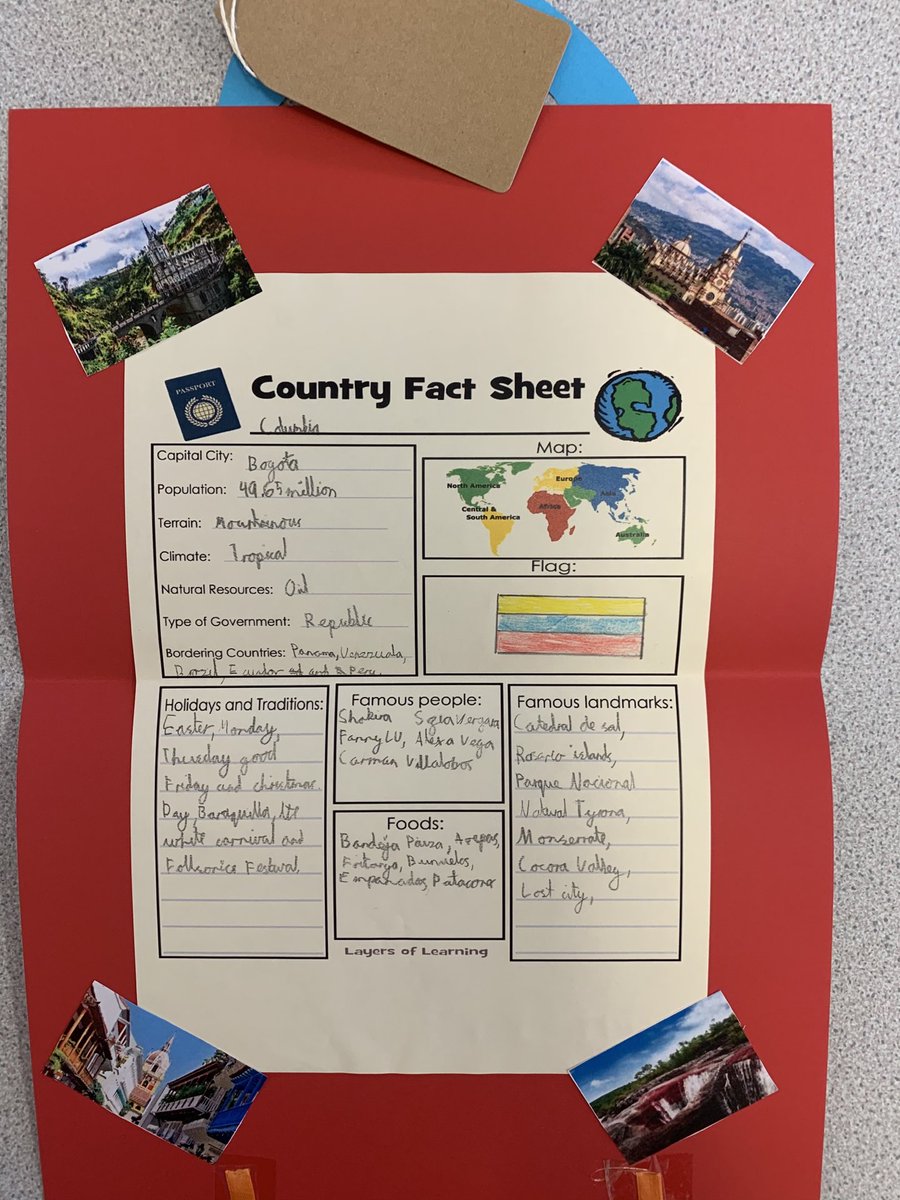 PASSPORT
Country Fact Sheet
Columbia
Capital City: Bogota
Population: 49.65 million
Terrain: Mountainous
Climate: Tropical
Natural Resources: Oil
Type of Government: Republic
Bordering Countries: Panama, Venezuala,
Brazil, Ecuador and Peru.
Map:
North America
Europe
Asia
Africa
Central &
South America
Australia
Flag:
Holidays and Traditions:
Easter, Monday,
Thursday good
Friday and christmas
Day, Baraquilla,
white carnival and
Follsonics Festival,
Famous people:
Shakira Sofia Vergara
Fanny LU, Alexa Vega
Carman Villalobos
Foods:
Bandeja Paiza, Arepas,
Fritanga, Bunuelos,
Empanadas, Patacona
Famous landmarks:
Catedral de sal,
Rosario islands,
Parque Nacional
Natural Tyrona,
Monserrate,
Cocora Valley,
Lost city,
Layers of Learning